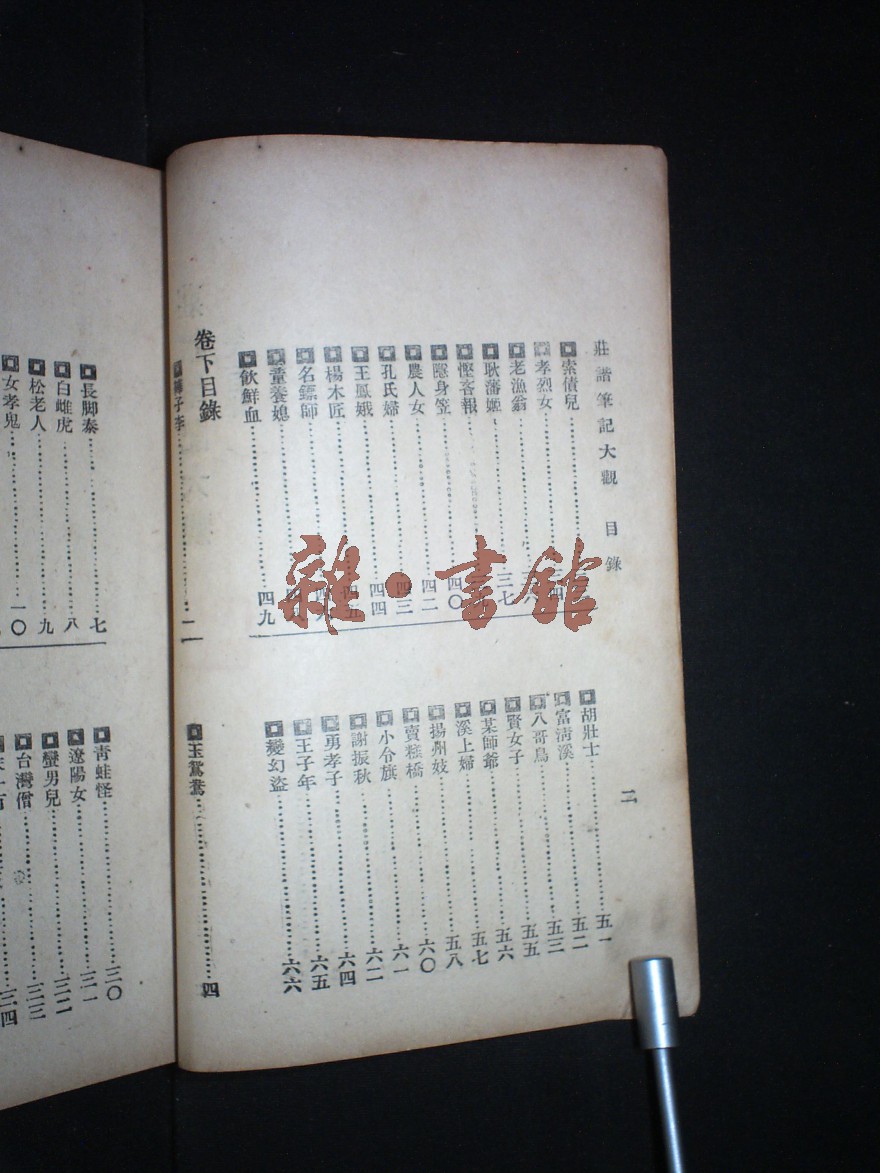 莊諧筆記大觀 目錄
二
索債兒
孝烈女
老漁翁
耿藩姬……三七
慳客報
隱身笠……四〇
農人女……四二
孔氏婦……四三
王鳳娥……四四
楊木匠……四五
名鏢師
童養媳
飲鮮血……四九
胡壯士……五一
富清溪……五二
八哥鳥……五三
賢女子……五五
某師爺……五六
溪上婦……五七
揚州妓……五八
賣糕橋……六〇
小令旗……六一
謝振秋……六二
勇孝子……六四
王子年……六五
變幻盜……六六
卷下目錄
子李
玉鴛鴦……四
長脚秦……七
白雌虎……八
松老人……九
女孝鬼……一〇
靑蛙怪……三〇
遼陽女……三一
蠻男兒……三二
台灣僧……三三
三四
雜·書館